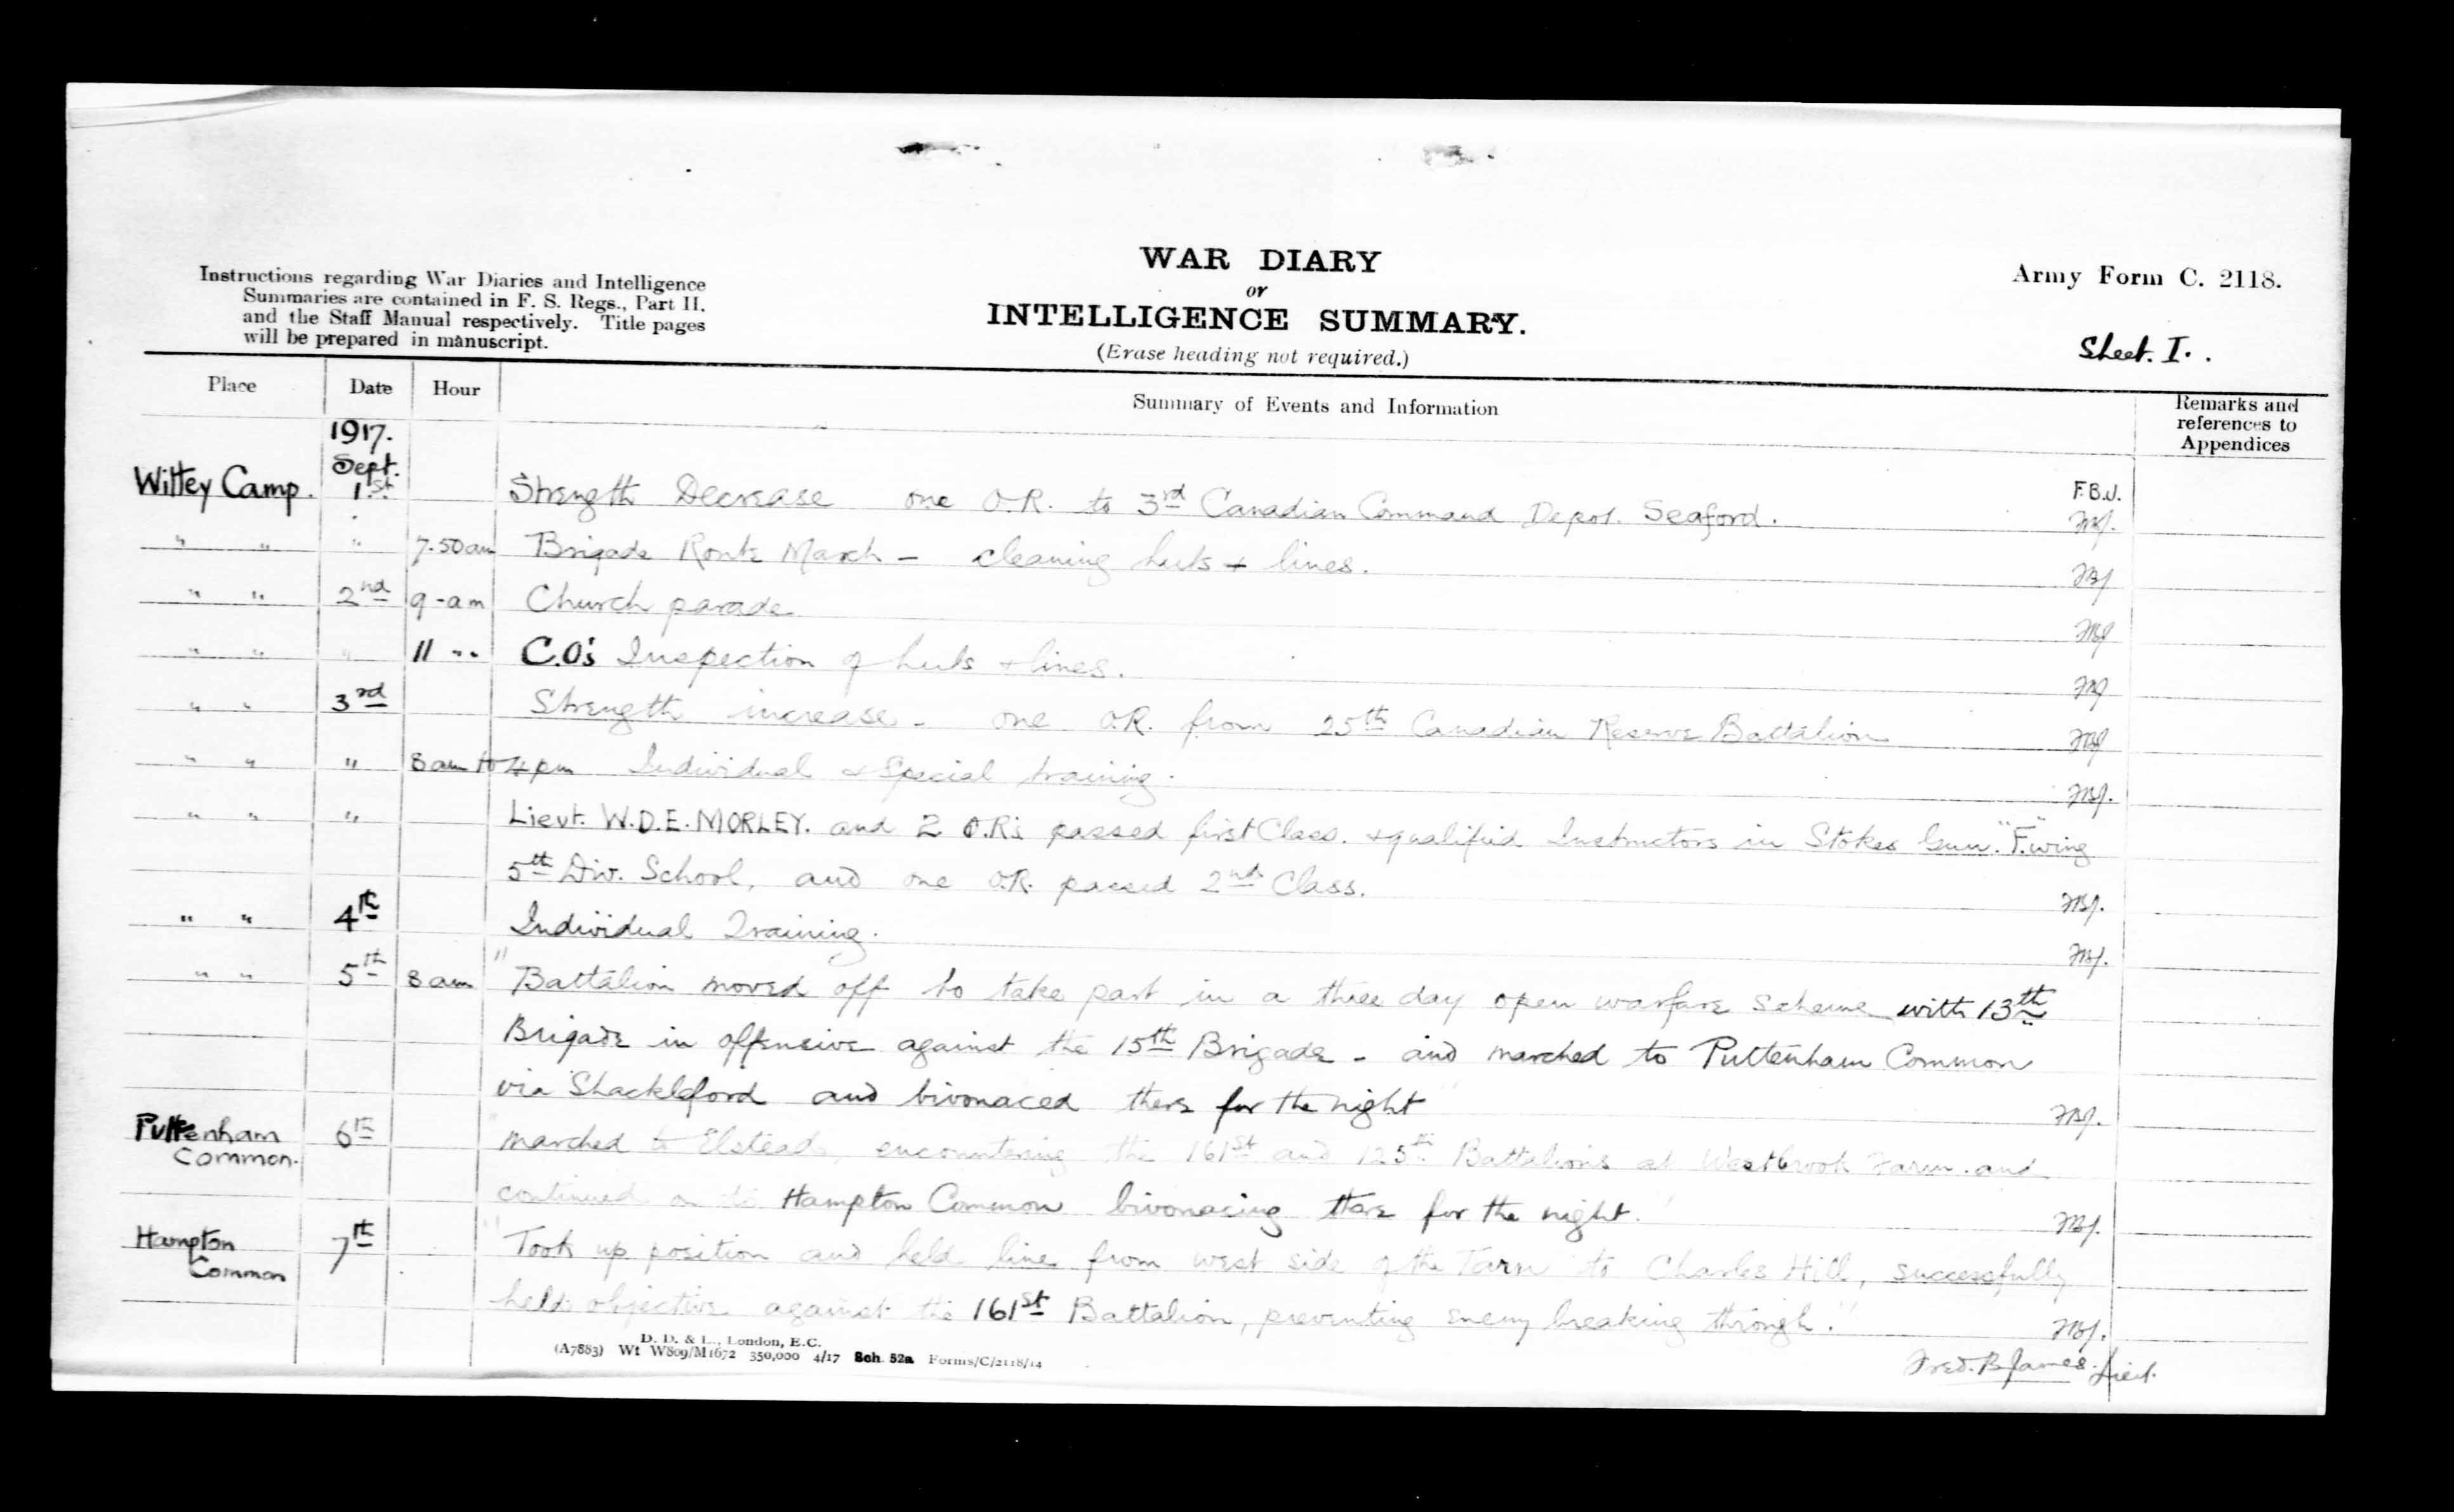 WAR DIARY
or
INTELLIGENCE SUMMARY.
(Erase heading not required.)
Instructions regarding War Diaries and Intelligence
Summaries are contained in F. S. Regs., Part II.
and the Staff Manual respectively. Title pages
will be prepared in manuscript.
Army Form C. 2118.
Sheet. I.
Place Date Hour Summary of Events and Information Remarks and references to Appendices
1917.
Sept.
Witley Camp. 1st Strength Decrease one O.R. to 3rd Canadian Command Depot. Seaford. F.B.J.
FBJ.
" " " 7.50am Brigade Route March - cleaning huts + lines. FBJ
" " 2nd 9-am Church parade FBJ
" " " 11 " C.O's Inspection of huts + lines. FBJ
" " 3rd Strength increase - one O.R. from 25th Canadian Reserve Battalion FBJ
" " " 8am to 4pm Individual & Special training. FBJ.
" " " Lieut. W.D.E. MORLEY. and 2 O.R's passed first Class. & qualified Instructors in Stokes Gun. "F" wing
5th Div. School, and one O.R. passed 2nd Class. FBJ.
" " 4th Individual Training. FBJ.
" " 5th 8am "Battalion moved off to take part in a three day open warfare scheme with 13th
Brigade in offensive against the 15th Brigade - and marched to Puttenham Common
via Shackleford and bivonaced there for the night" FBJ.
Puttenham Common. 6th "marched to Elstead, encountering the 161st and 125th Battalions at Westbrook Farm. and
continued on to Hampton Common bivonacing there for the night." FBJ.
Hampton Common 7th "Took up position and held line from west side of the Tarn to Charles Hill, successfully
held objective against the 161st Battalion, preventing enemy breaking through." FBJ.
D. D. & L., London, E.C.
(A7883) Wt W809/M1672 350,000 4/17 Sch. 52a Forms/C/2118/14
Fred. B James. Lieut.